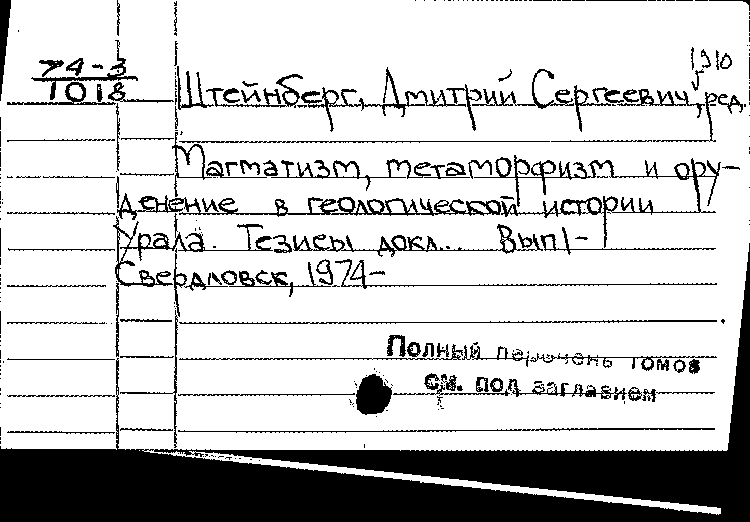 74-3
1018
1910
Штейнберг, Дмитрий Сергеевич, ред.
Магматизм, метаморфизм и ору-
денение в геологической истории
Урала. Тезисы докл... Вып1-
Свердловск, 1974-
Полный перечень томов
см. под заглавием